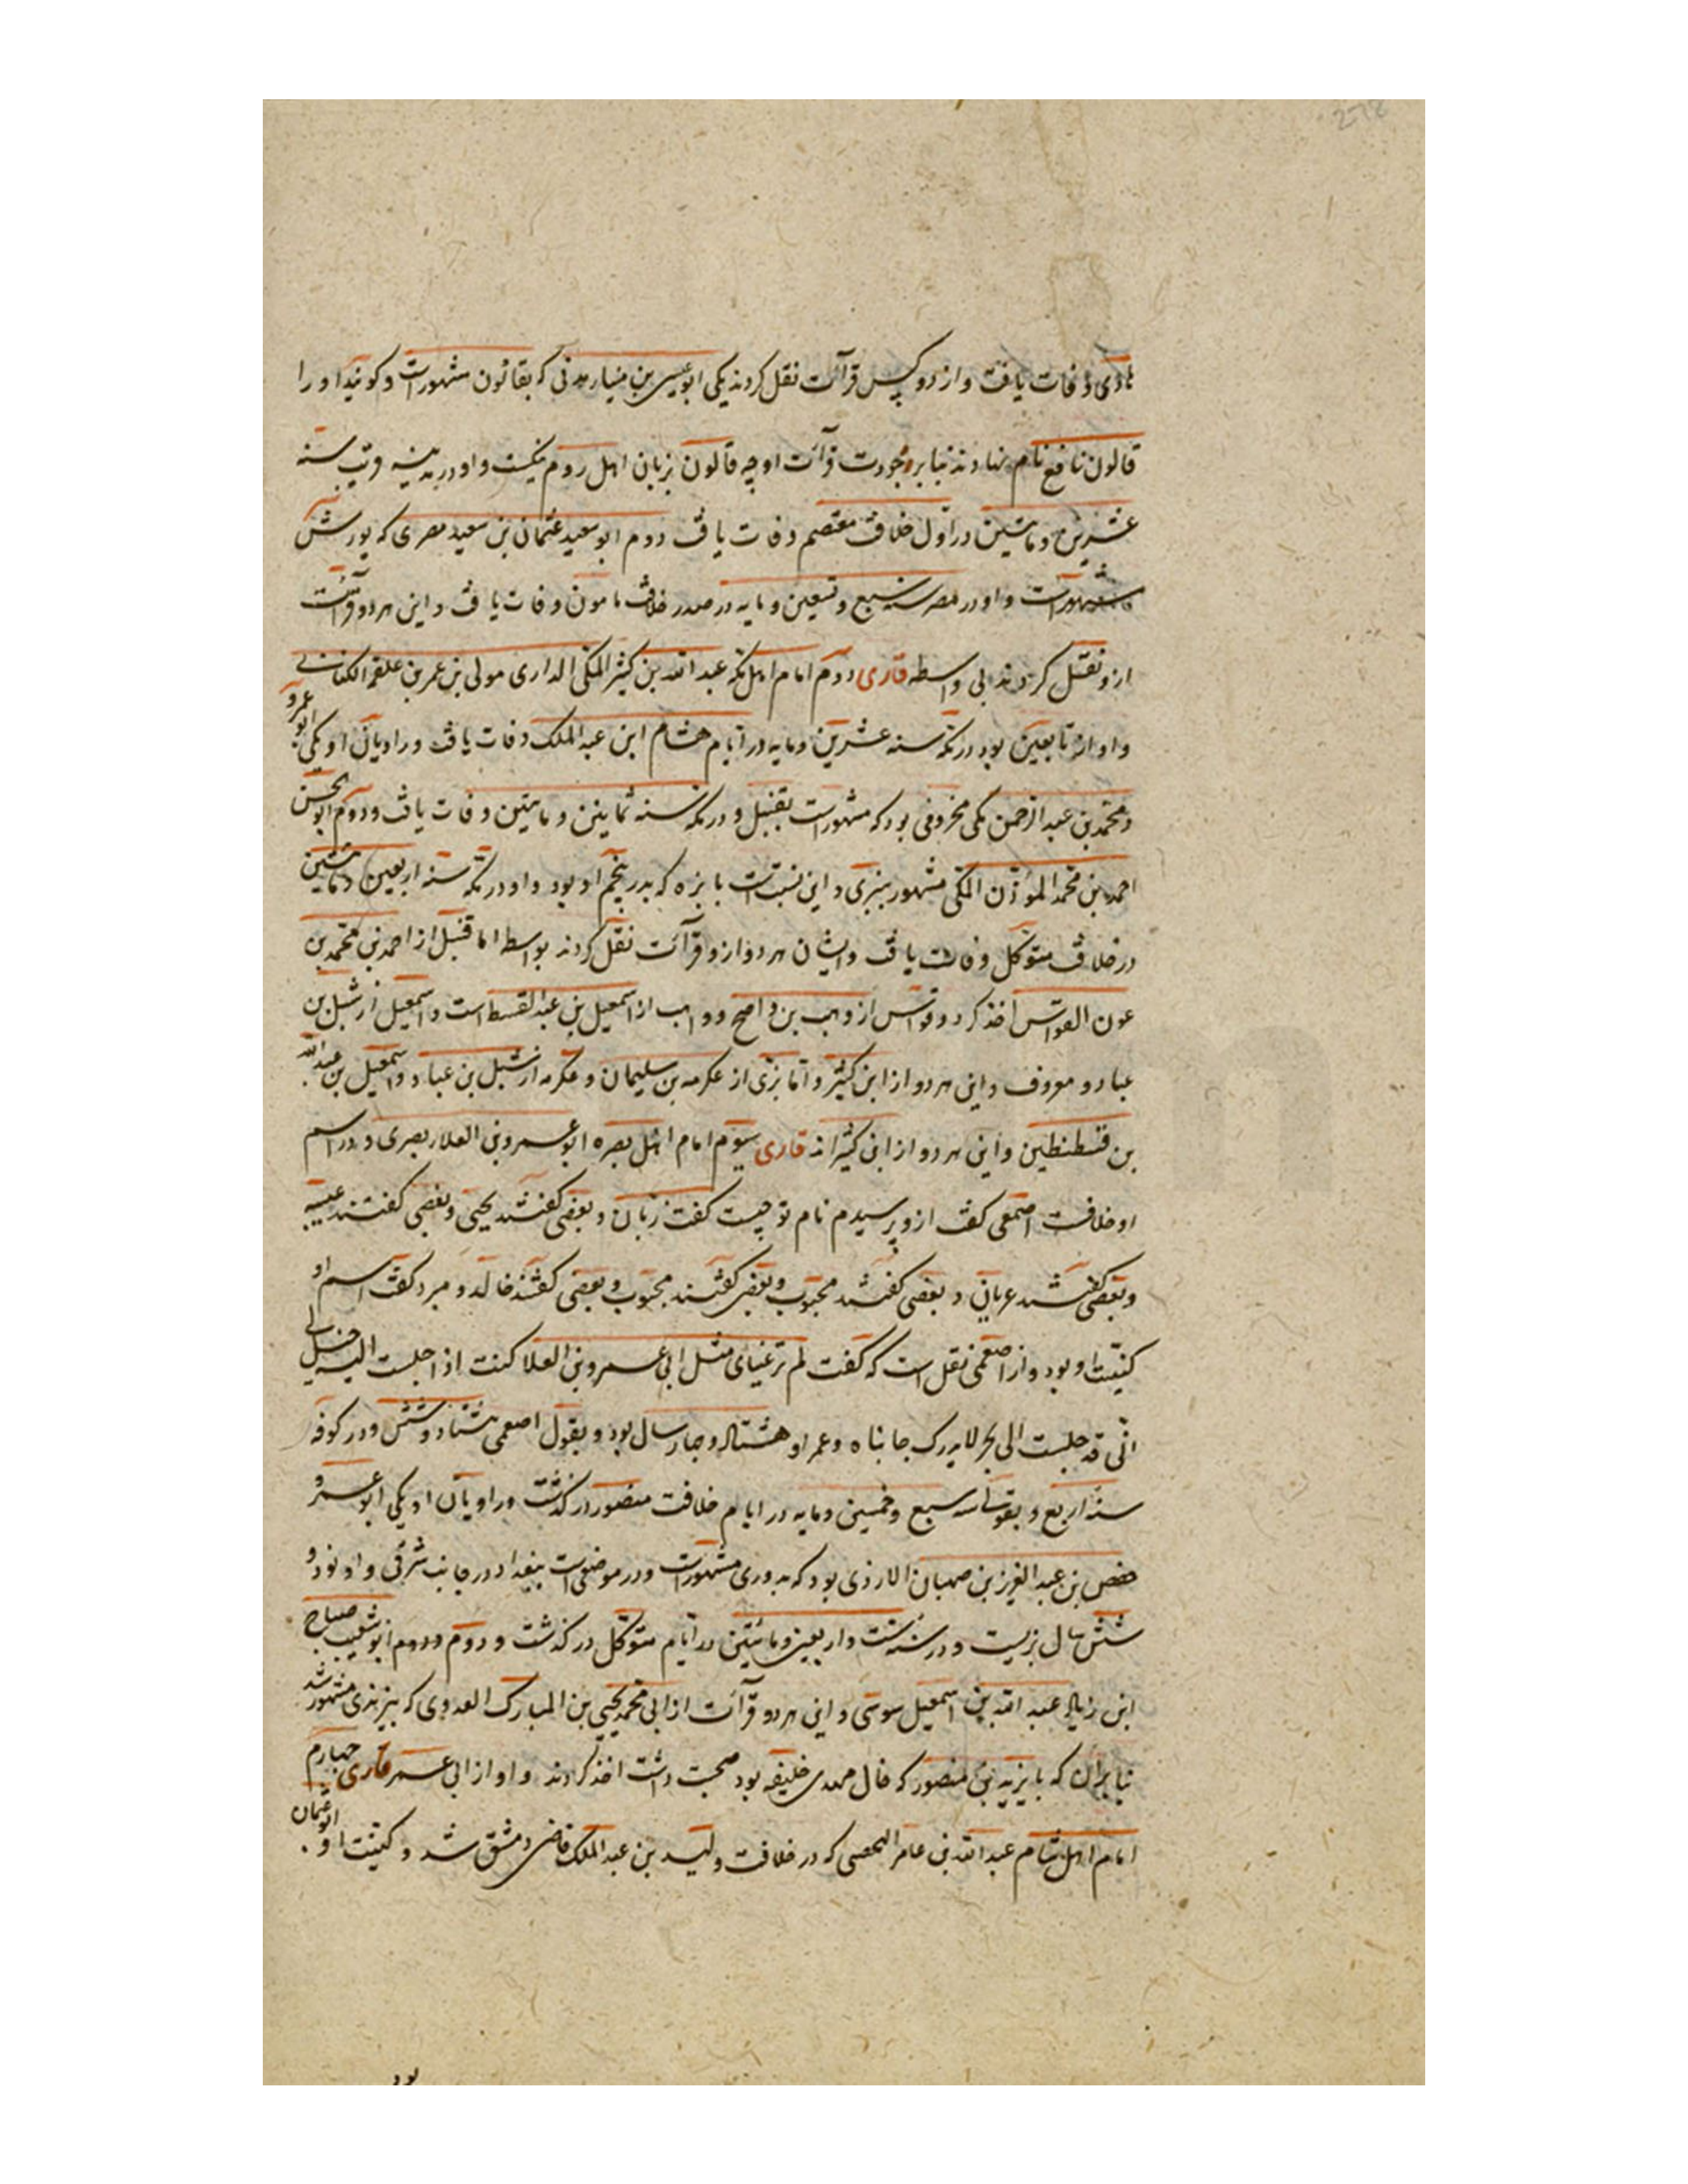 هادی وفات یافت و از دو کس قرآت نقل کردند یکی ابوعیسی بن مینا مدنی که بقانون مشهورات و کویند او را
قالون نافع نام نهادند بنا بر جودت قرآت او چه قالون بزبان اهل روم نیکست و او در مدینه قریب سنه
عشرین و مائتین در اول خلافت معتصم وفات یافت دوم ابوسعید عثمان بن سعید مصری که بورش
مشهورات و او در مصر سنه سبع و تسعین و مایه در صدر خلافت مامون وفات یافت و این هر دو قرآئت
ازو نقل کردند بی واسطه قاری دوم امام اهل مکه عبد الله بن کثیر المکی الداری مولی بن عمر بن علقمه الکنانی
و او از تابعین بود در مکه سنه عشرین و مایه در ایام هشام ابن عبد الملک وفات یافت و راویان او یکی ابو عمرو
و محمد بن عبد الرحمن مکی مخزومی بود که مشهورات بقنبل و در مکه سنه ثمانین و مایتین وفات یافت و دوم ابو الحسن
احمد بن محمد المؤذن المکی مشهور ببزی و این نسبتات با بزه که پدر پنجم او بود و او در مکه سنه اربعین و مائتین
در خلافت متوکل وفات یافت و ایشان هر دو ازو قرآئت نقل کردند بواسطه اما قنبل از احمد بن محمد بن
عون القواس اخذ کرد و قواس از وهب بن واضح و وهب از اسمعیل بن عبد القسط است و اسمعیل از شبل بن
عباد و معروف و این هر دو از ابن کثیر و اما بزی از عکرمه بن سلیمان و عکرمه از شبل بن عباد و اسمعیل بن عبد الله
بن قسطنطین و این هر دو از ابن کثیراند قاری سوم امام اهل بصره ابو عمرو بن العلا بصری و در اسم
او خلافت اصمعی کفت ازو پرسیدم نام تو چیست کفت زبان و بعضی کفتند یحیی و بعضی کفتند عیینه
و بعضی کفتند عریان و بعضی کفتند محبوب و بعضی کفتند محبوب و بعضی کفتند خالد و مبرد کفت اسم او
کنیت او بود و از اصمعی نقل است که کفت لم تر عینای مثل ابی عمرو بن العلا کنت اذا جلست الیه خیل لی
انی قد جلست الی بحر لا یدرک جانباه و عمر او هشتاد و چهار سال بود و بقول اصمعی هشتاد و شش و در کوفه
سنه اربع و بقولی سنه سبع و خمسین و مایه در ایام خلافت منصور در کذشت و راویان او یکی ابو عمرو
حفص بن عبد العزیز بن صهبان الازدی بود که بدوری مشهورات و در موضعی است ببغداد در جانب شرقی و او نود و
شش سال بزیست و در سنه ست و اربعین و مائتین در ایام متوکل در کذشت و دوم و دوم ابو شعیب صباح
ابن زیاد عبد الله بن اسمعیل سوسی و این هر دو قرآئت از ابی محمد یحیی بن المبارک العدوی که بیزیدی مشهور شد
بنا بران که با یزید بن منصور که خال مهدی خلیفه بود صحبت داشت اخذ کردند و او از ابی عمر قاری چهارم
امام اهل شام عبد الله بن عامر الیحصبی که در خلافت ولید بن عبد الملک قاضی دمشق شد و کنیت او ابو عثمان
بود